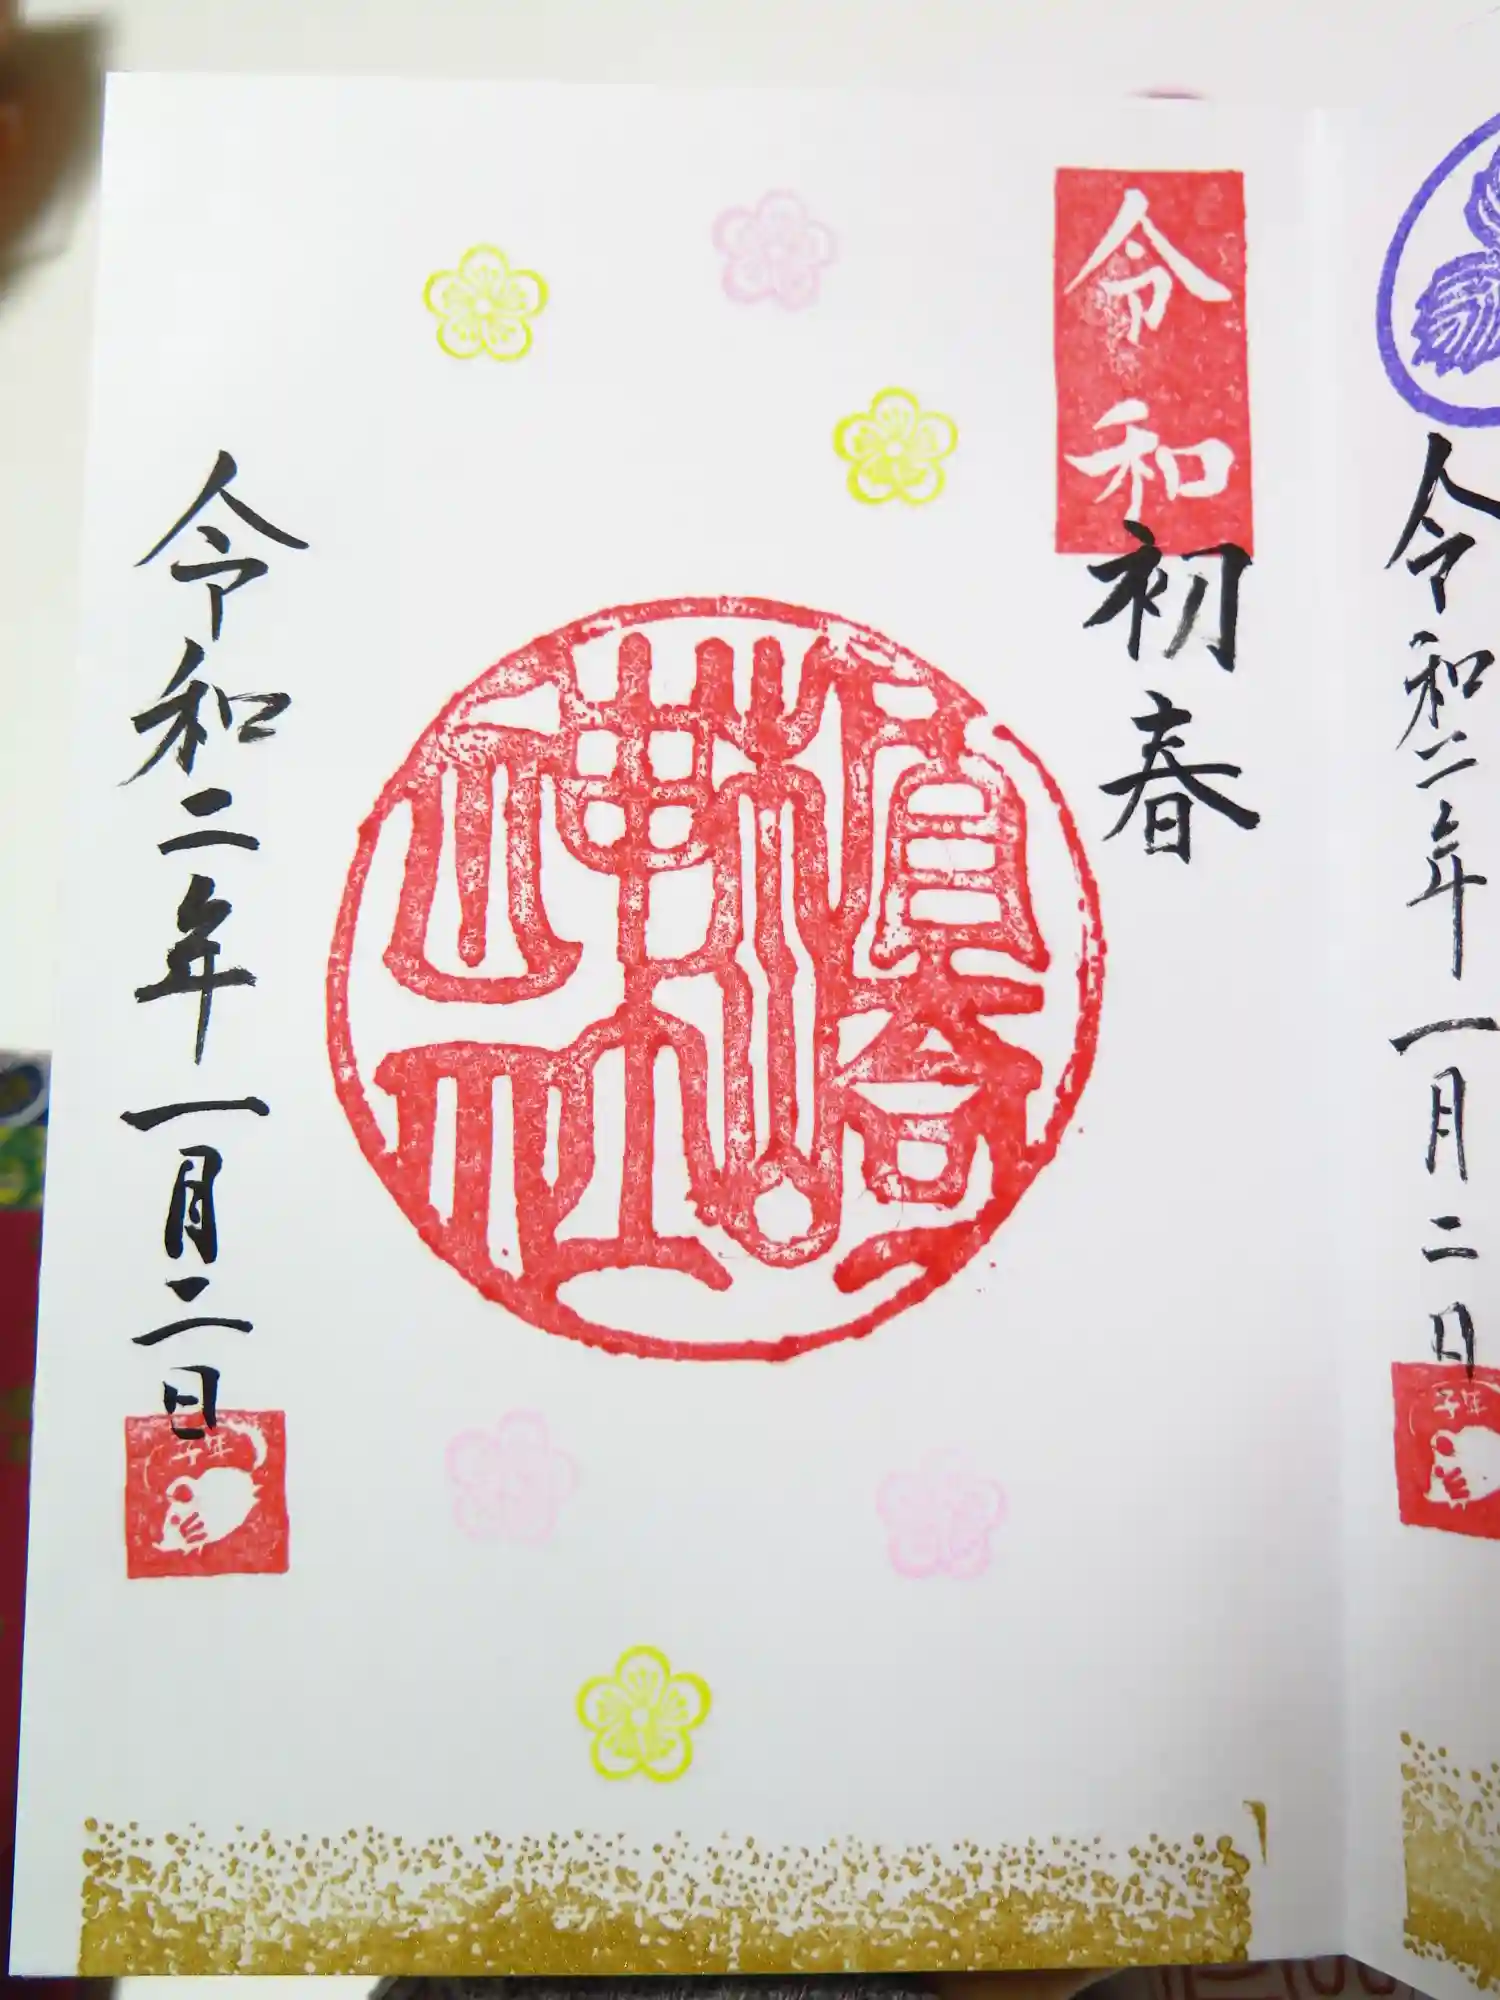 令和二年一月二日
子年
令和
初春
令和二年一月二日
子年